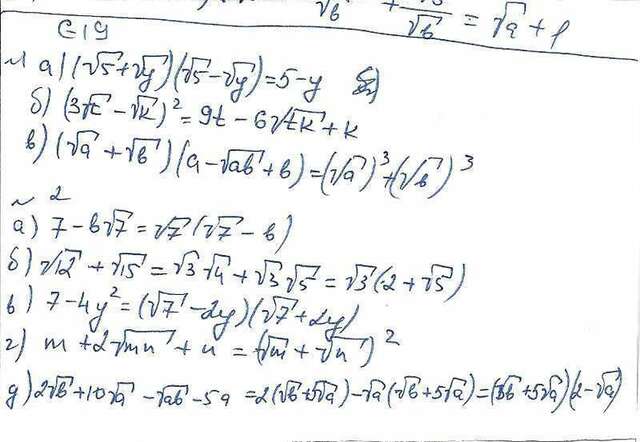 √b + √b/√b = √a + p
C-19
№1 а) (√5+√y)(√5-√y)=5-y
б) (3√t - √k)² = 9t - 6√tk + k
в) (√a + √b)(a - √ab + b) = (√a)³+(√b)³
№2
а) 7 - b√7 = √7(√7 - b)
б) √12 + √15 = √3√4 + √3√5 = √3(2 + √5)
в) 7 - 4y² = (√7 - 2y)(√7 + 2y)
г) m + 2√mn + n = (√m + √n)²
д) 2√b + 10√a - √ab - 5a = 2(√b+5√a) - √a(√b+5√a) = (√b+5√a)(2-√a)